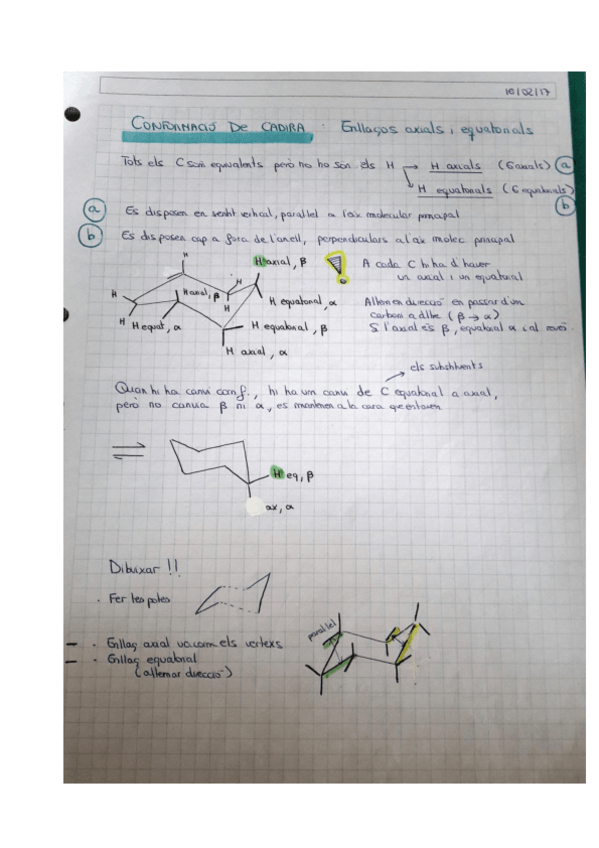 16/02/17
CONFORMACIÓ DE CADIRA : Enllaços axials i equatorials
Tots els C són equivalents però no ho són els H → H axials (6 axials) a
H equatorials (6 equatorials) b
a Es disposen en sentit vertical, paral·lel a l'aix molecular principal
b Es disposen cap a fora de l'anell, perpendiculars a l'aix molec principal
H
H axial, β
! A cada C hi ha d'haver
un axial i un equatorial
H
H
H axial, β
H
H equatorial, α
Alternen direcció en passar d'un
carboni a altre (β → α)
H
H equat, α
H equatorial, β
Si l'axial és β, equatorial α i al revés.
H axial, α
els substituents
Quan hi ha canvi conf., hi ha un canvi de C equatorial a axial,
però no canvia β ni α, es mantenen a la cara que estaven
H eq, β
ax, α
Dibuixar !!
· Fer les potes
parallel
- · Enllaç axial va com els vertexs
- · Enllaç equatorial
(alternar direcció)